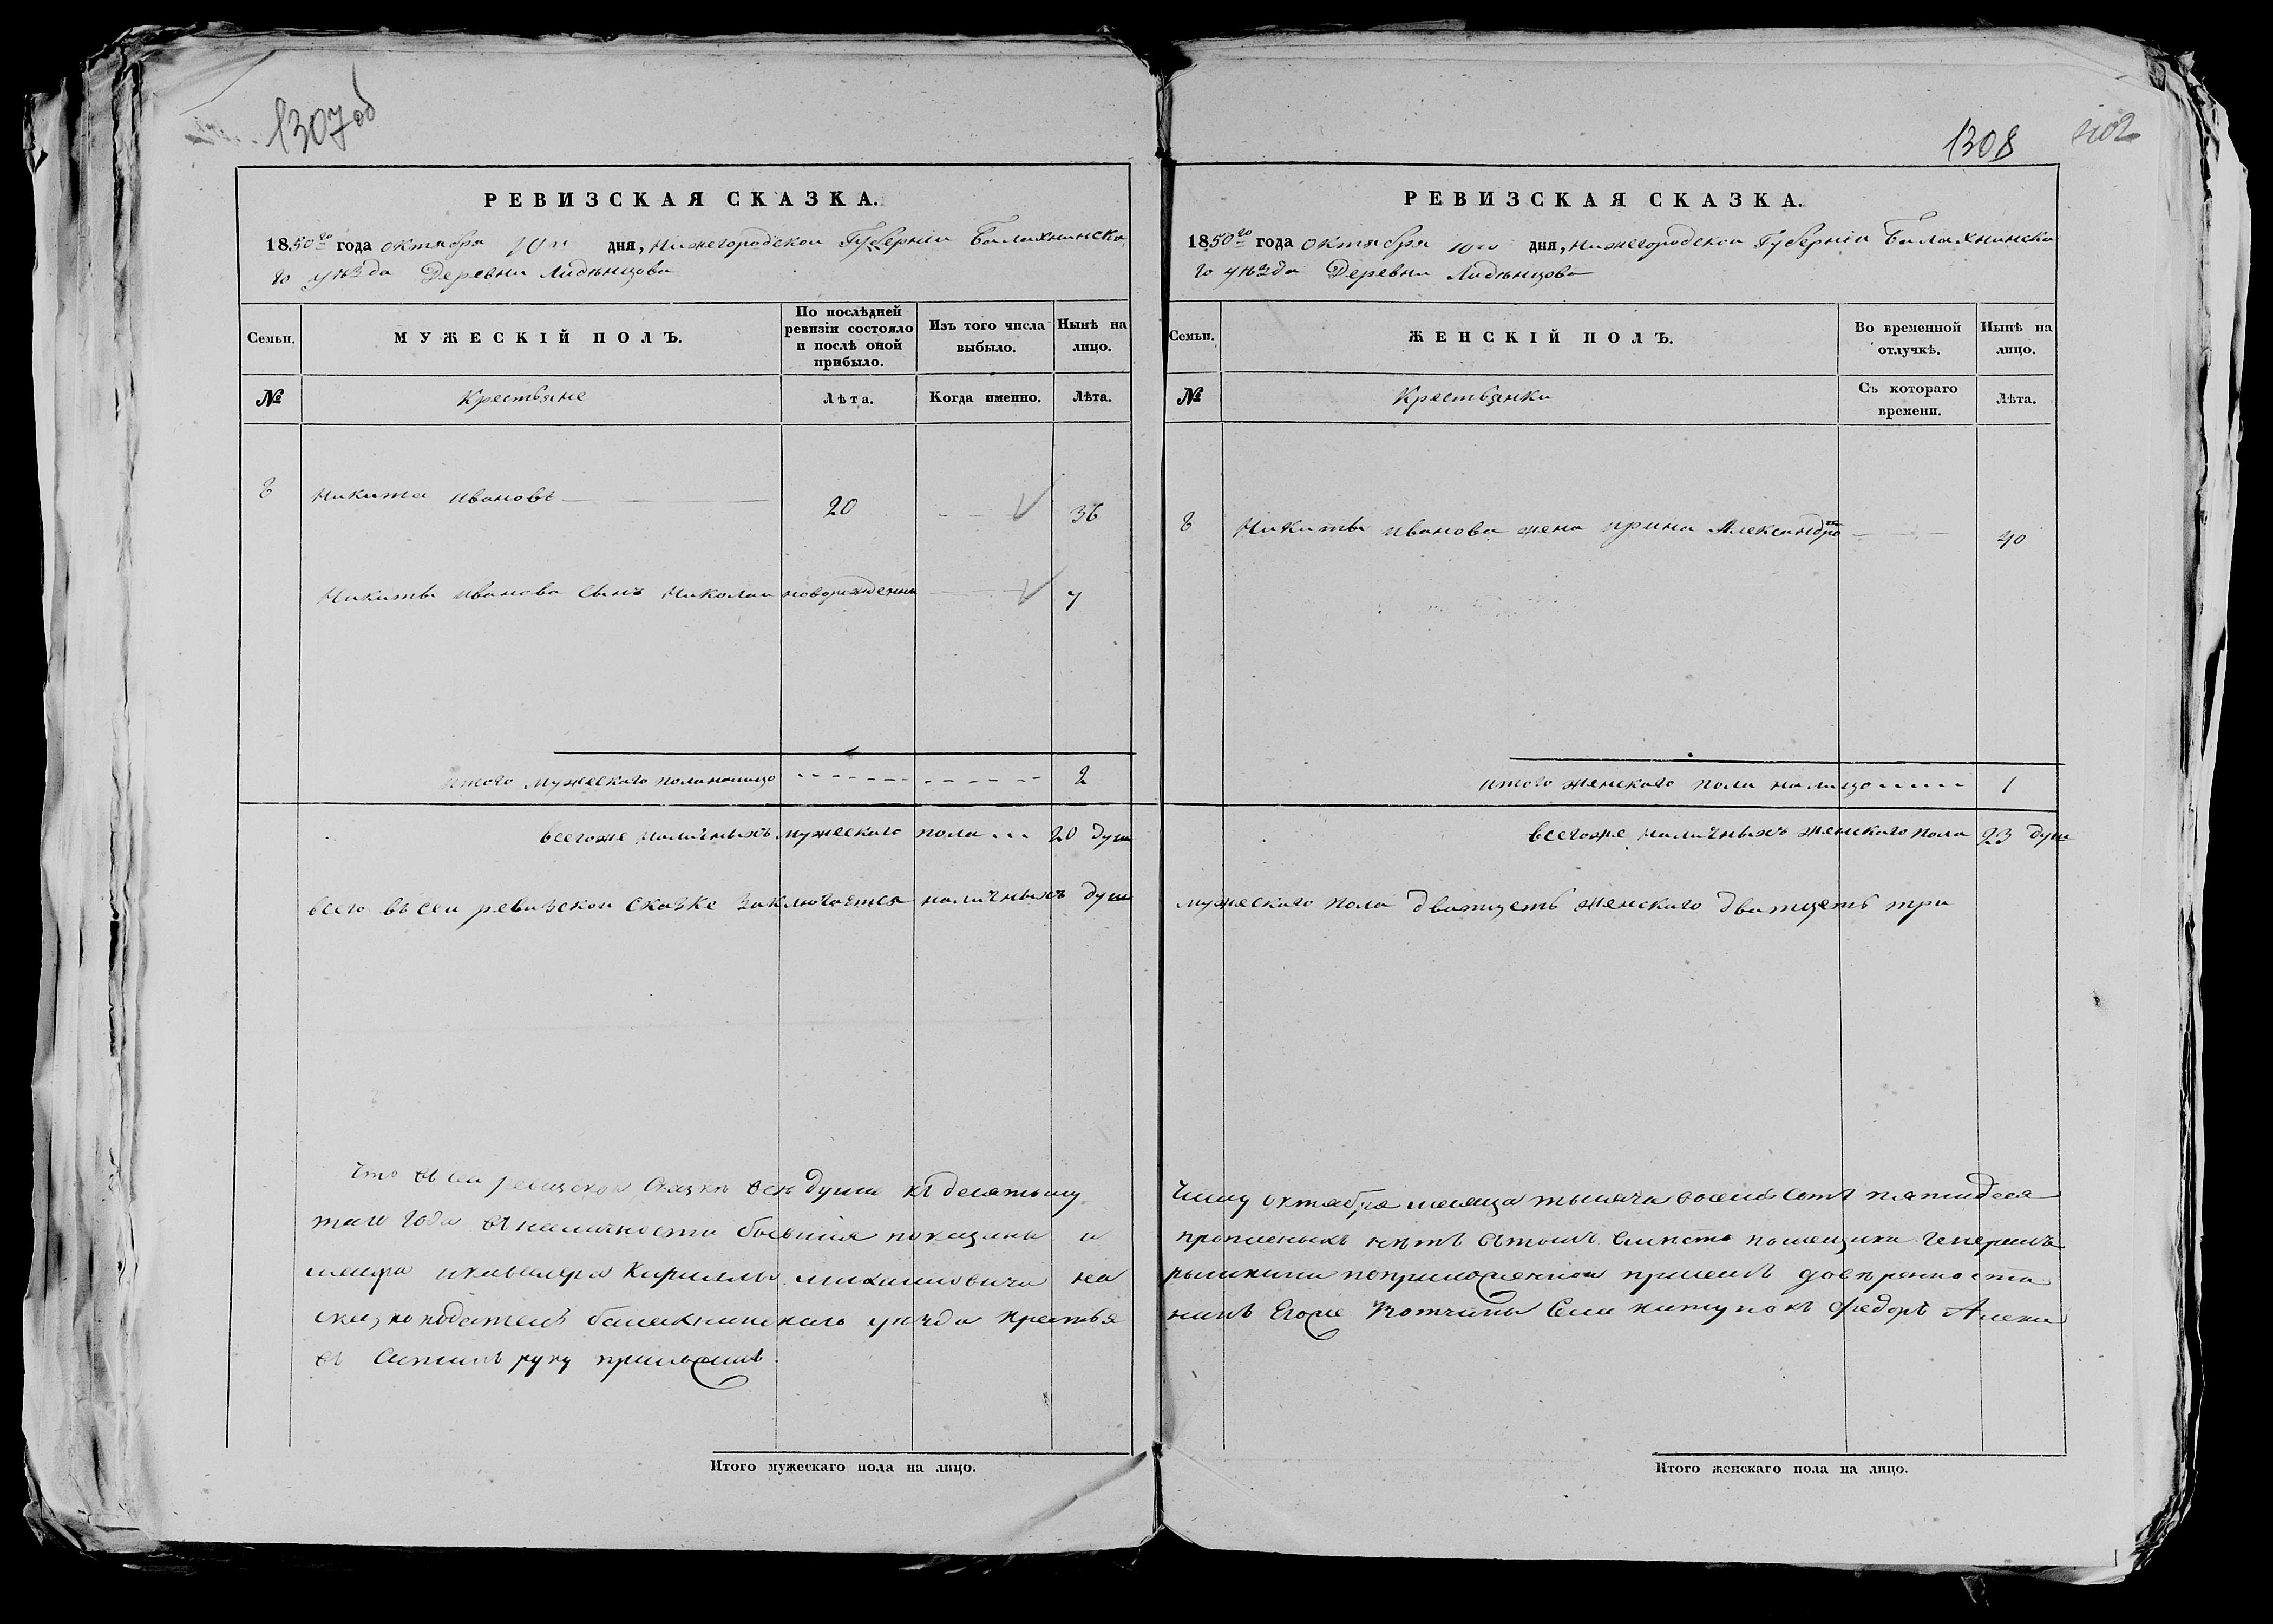 1307об
РЕВИЗСКАЯ СКАЗКА.
1850го года октября 10го дня, Нижегородской Губерніи Балахнинска
го уѣзда Деревни Лиденцова
Семьи.
МУЖЕСКІЙ ПОЛЪ.
По послѣдней ревизіи состояло и послѣ оной прибыло.
Изъ того числа выбыло.
Нынѣ на лицо.
№
Крестьяне
Лѣта.
Когда именно.
Лѣта.
8 Никита Ивановъ 20 36
Никиты Иванова сынъ Николаи новорожденны 7
итого мужескаго пола налицо 2
всегоже наличныхъ мужескаго пола 20 душ
всего въ сеи ревизскои сказке заключается наличныхъ душ
Что въ сеи ревизской сказкѣ всѣ души къ десятому
таго года въ наличности бывшія показаны и
маіора икавалера Кирилы Михаиловича На
сказкоподатель балахнинскаго уѣзда крестья
въ Сипинъ руку приложилъ.
Итого мужескаго пола на лицо.
1308
1102
РЕВИЗСКАЯ СКАЗКА.
1850го года октября 10го дня, Нижегородской Губерніи Балахнинска
го уѣзда Деревни Лиденцова
Семьи.
ЖЕНСКІЙ ПОЛЪ.
Во временной отлучкѣ.
Нынѣ на лицо.
№
Крестьянки
Съ котораго времени.
Лѣта.
8 Никиты Иванова жена Ирина Александрова 40
итого женскаго пола налицо 1
всегоже наличныхъ женскаго пола 23 душ
мужескаго пола дватцеть женскаго дватцеть три
числу октября месяца тысяча восемь сотъ пятидеся
прописныхъ нѣтъ въ томъ вместо помещика Генералъ
рышкина поприложенной при семъ довѣренности
нинъ Егоже Вотчины Села Федоръ Алекси
Итого женскаго пола на лицо.